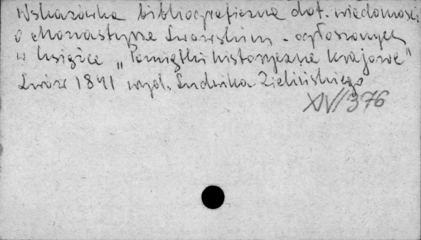 Wskazówka bibliograficzna dot. wiadomości
o Monasterze Lwowskim - ogłoszonych
w książce „Pamiątki historyczne krajowe"
Lwów 1841 wyd. Ludwika Zielińskiego
XIV/376